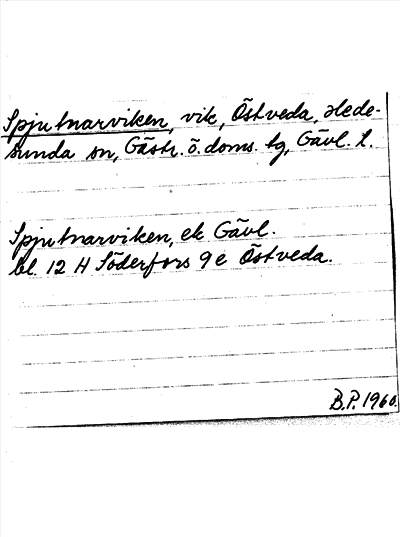 Spjutnarviken, vik, Östveda, Hede-
sunda sn, Gästr. ö. doms. tg, Gävl. l.
Spjutnarviken, ek Gävl.
bl. 12 H Söderfors 9 e Östveda.
B.P. 1960.